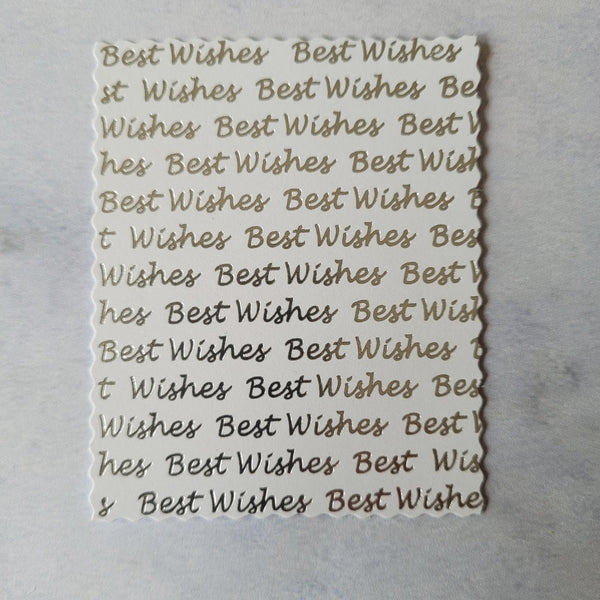 Best Wishes Best Wishes
st Wishes Best Wishes Be
Wishes Best Wishes Best W
hes Best Wishes Best Wish
Best Wishes Best Wishes B
t Wishes Best Wishes Bes
Wishes Best Wishes Best W
hes Best Wishes Best Wish
Best Wishes Best Wishes B
t Wishes Best Wishes Bes
Wishes Best Wishes Best W
hes Best Wishes Best Wis
s Best Wishes Best Wishe